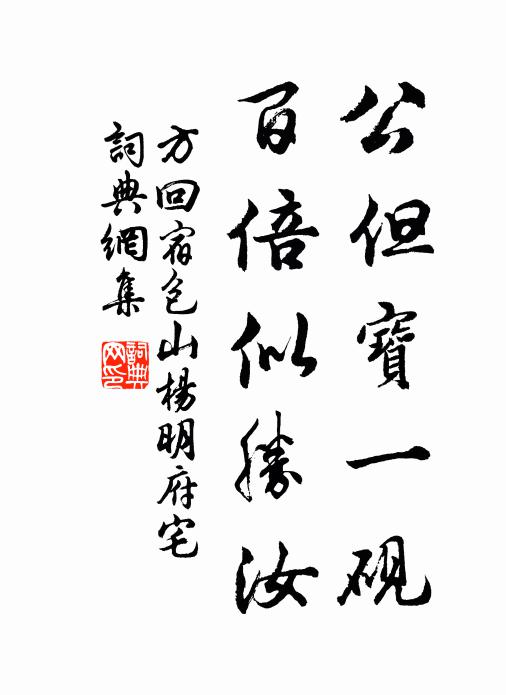 公但寶一硯
百倍似勝汝
方回宿包山楊明府宅
詞典網集
詞典網印